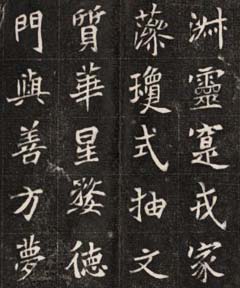 淵靈寔戎家
藻瓊式抽文
質華星婺德
門與善方夢